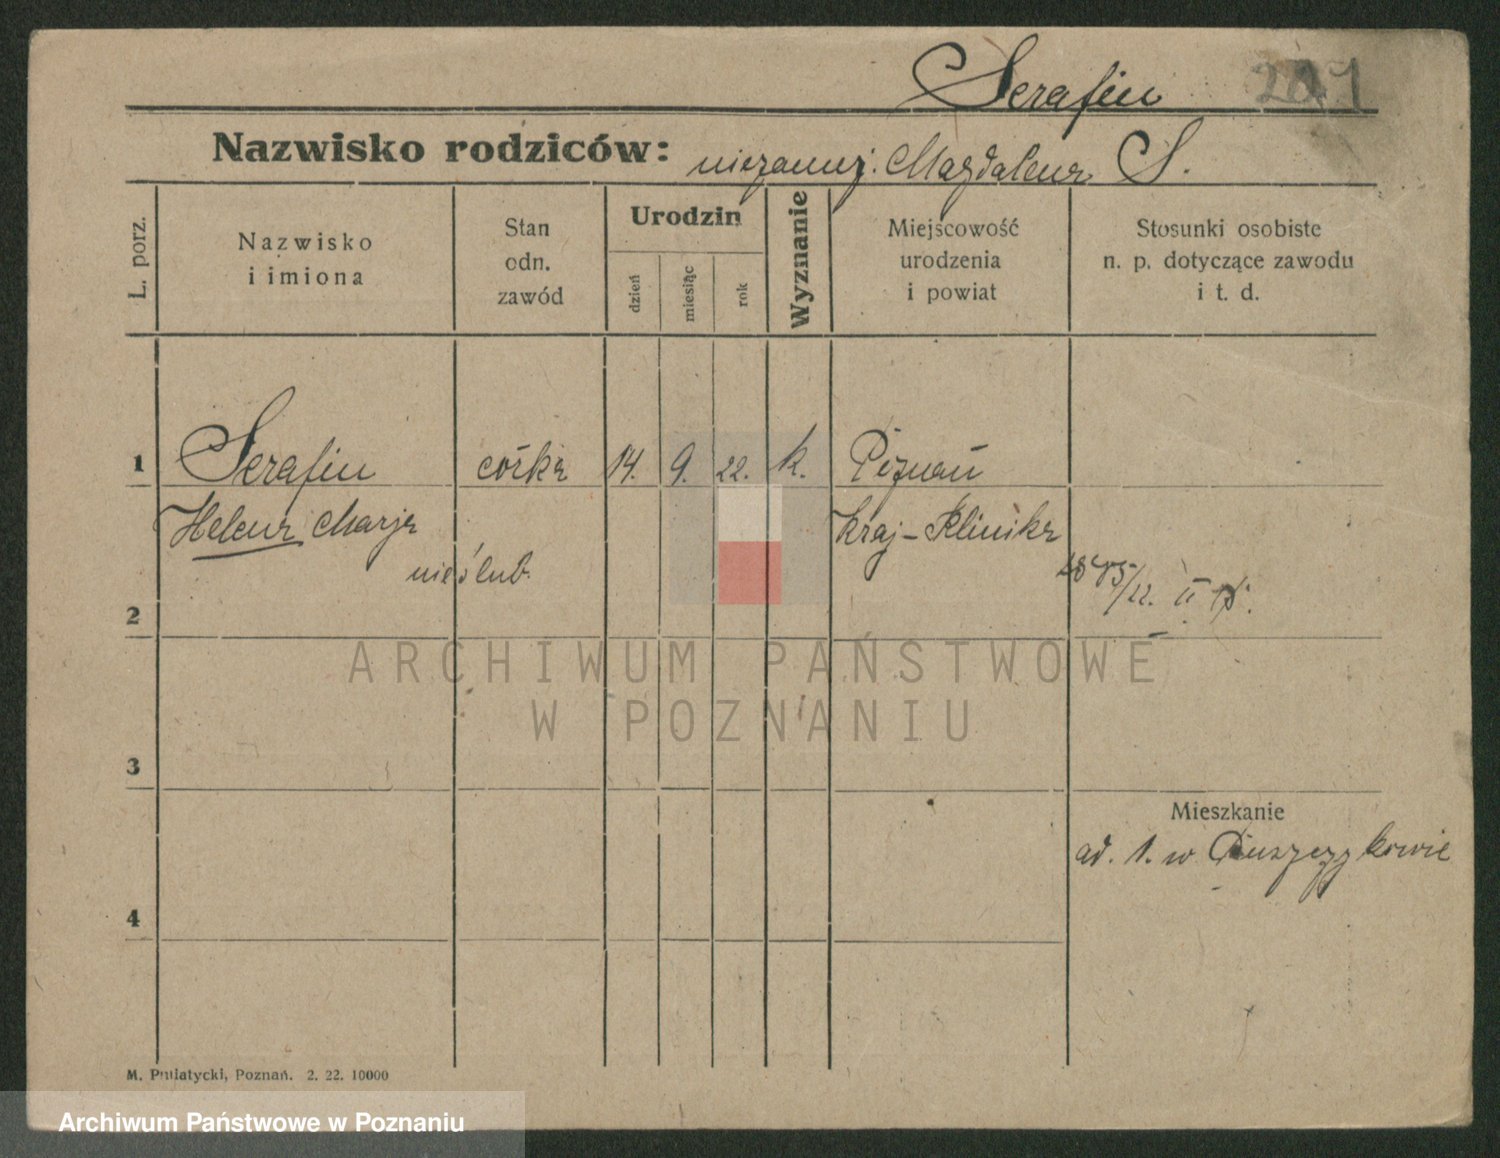 Serafin
Nazwisko rodziców: niezamęż. Magdalena S.
L. porz.
Nazwisko
i imiona
Stan
odn.
zawód
Urodzin
dzień
miesiąc
rok
Wyznanie
Miejscowość
urodzenia
i powiat
Stosunki osobiste
n. p. dotyczące zawodu
i t. d.
1 Serafin córka 14. 9. 22. k. Poznań
Helena Marja Kraj-Klinika
nieślub.
2
ARCHIWUM PAŃSTWOWE
W POZNANIU
3
Mieszkanie
ad. 1. w Puszczykowie
4
M. Putiatycki, Poznań. 2. 22. 10000
Archiwum Państwowe w Poznaniu